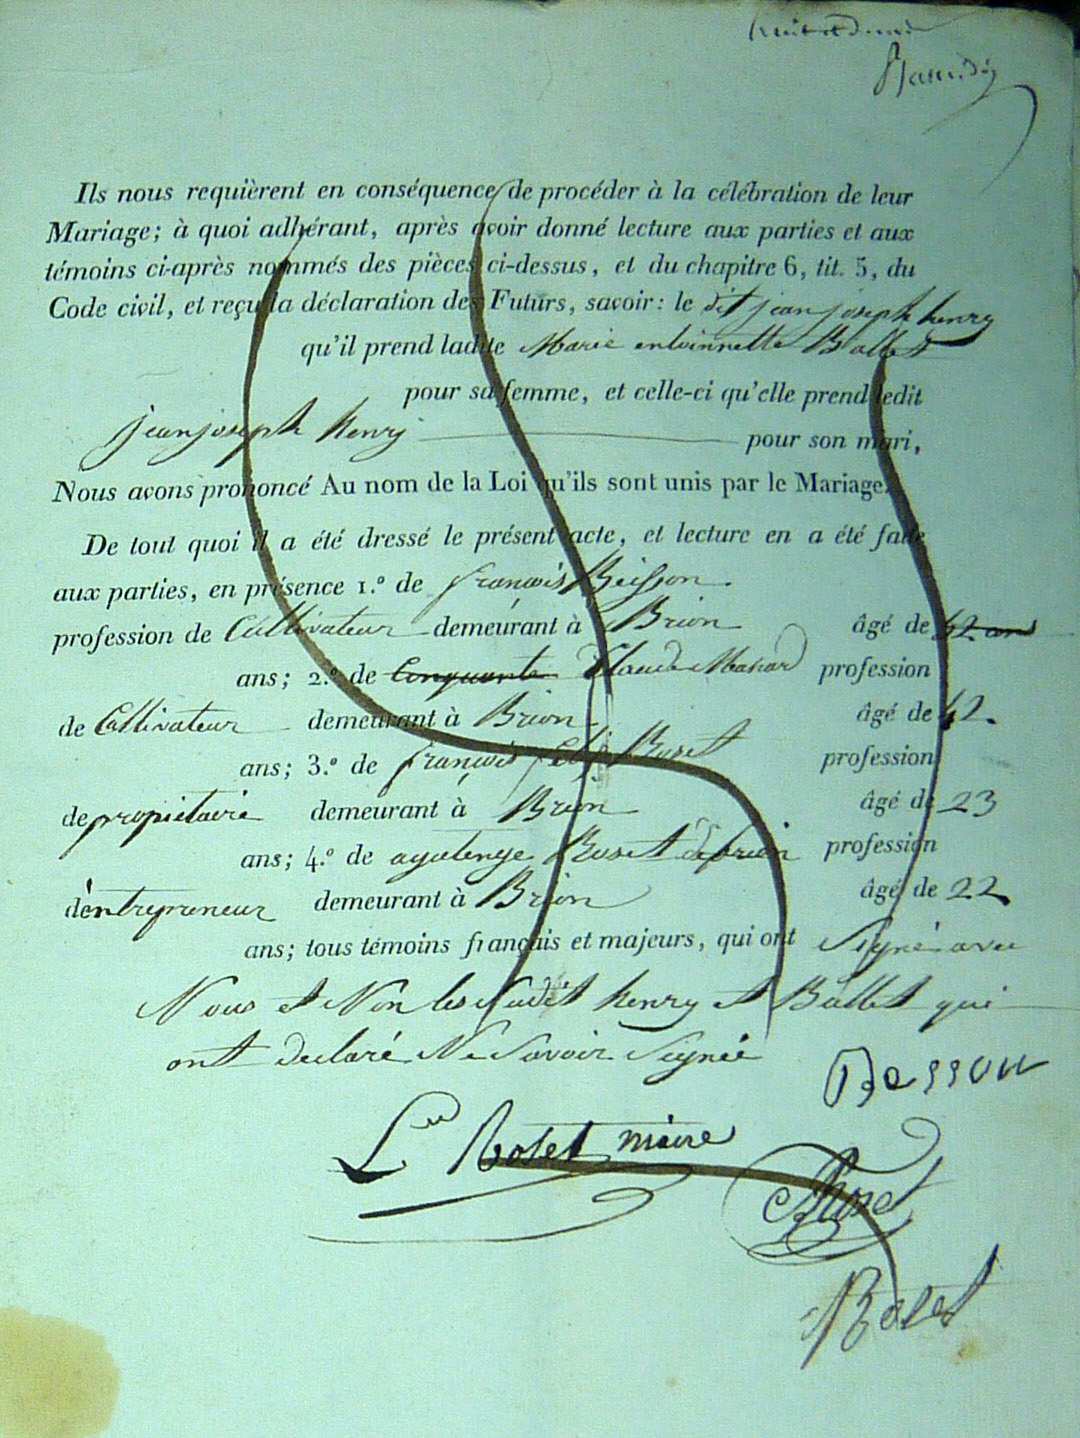 Ils nous requièrent en conséquence de procéder à la célébration de leur
Mariage; à quoi adhérant, après avoir donné lecture aux parties et aux
témoins ci-après nommés des pièces ci-dessus, et du chapitre 6, tit. 5, du
Code civil, et reçu la déclaration des Futurs, savoir: le dit jean joseph henry
qu'il prend ladite Marie entoinnette Ballet
pour sa femme, et celle-ci qu'elle prend ledit
jean joseph henry pour son mari,
Nous avons prononcé Au nom de la Loi qu'ils sont unis par le Mariage.
De tout quoi il a été dressé le présent acte, et lecture en a été faite
aux parties, en présence 1.º de françois
profession de Cultivateur demeurant à Brion âgé de 42 an
ans; 2.º de Cinquante Claude profession
de Cultivateur demeurant à Brion âgé de 42.
ans; 3.º de françois Roset profession
de propietaire demeurant à Brion âgé de 23
ans; 4.º de Roset profession
d'entrepreneur demeurant à Brion âgé de 22
ans; tous témoins français et majeurs, qui ont Signé avec
Nous et Non les sudit henry et Ballet qui
ont declaré Ne Savoir Signée
Besson
Roset maire
Roset
Roset